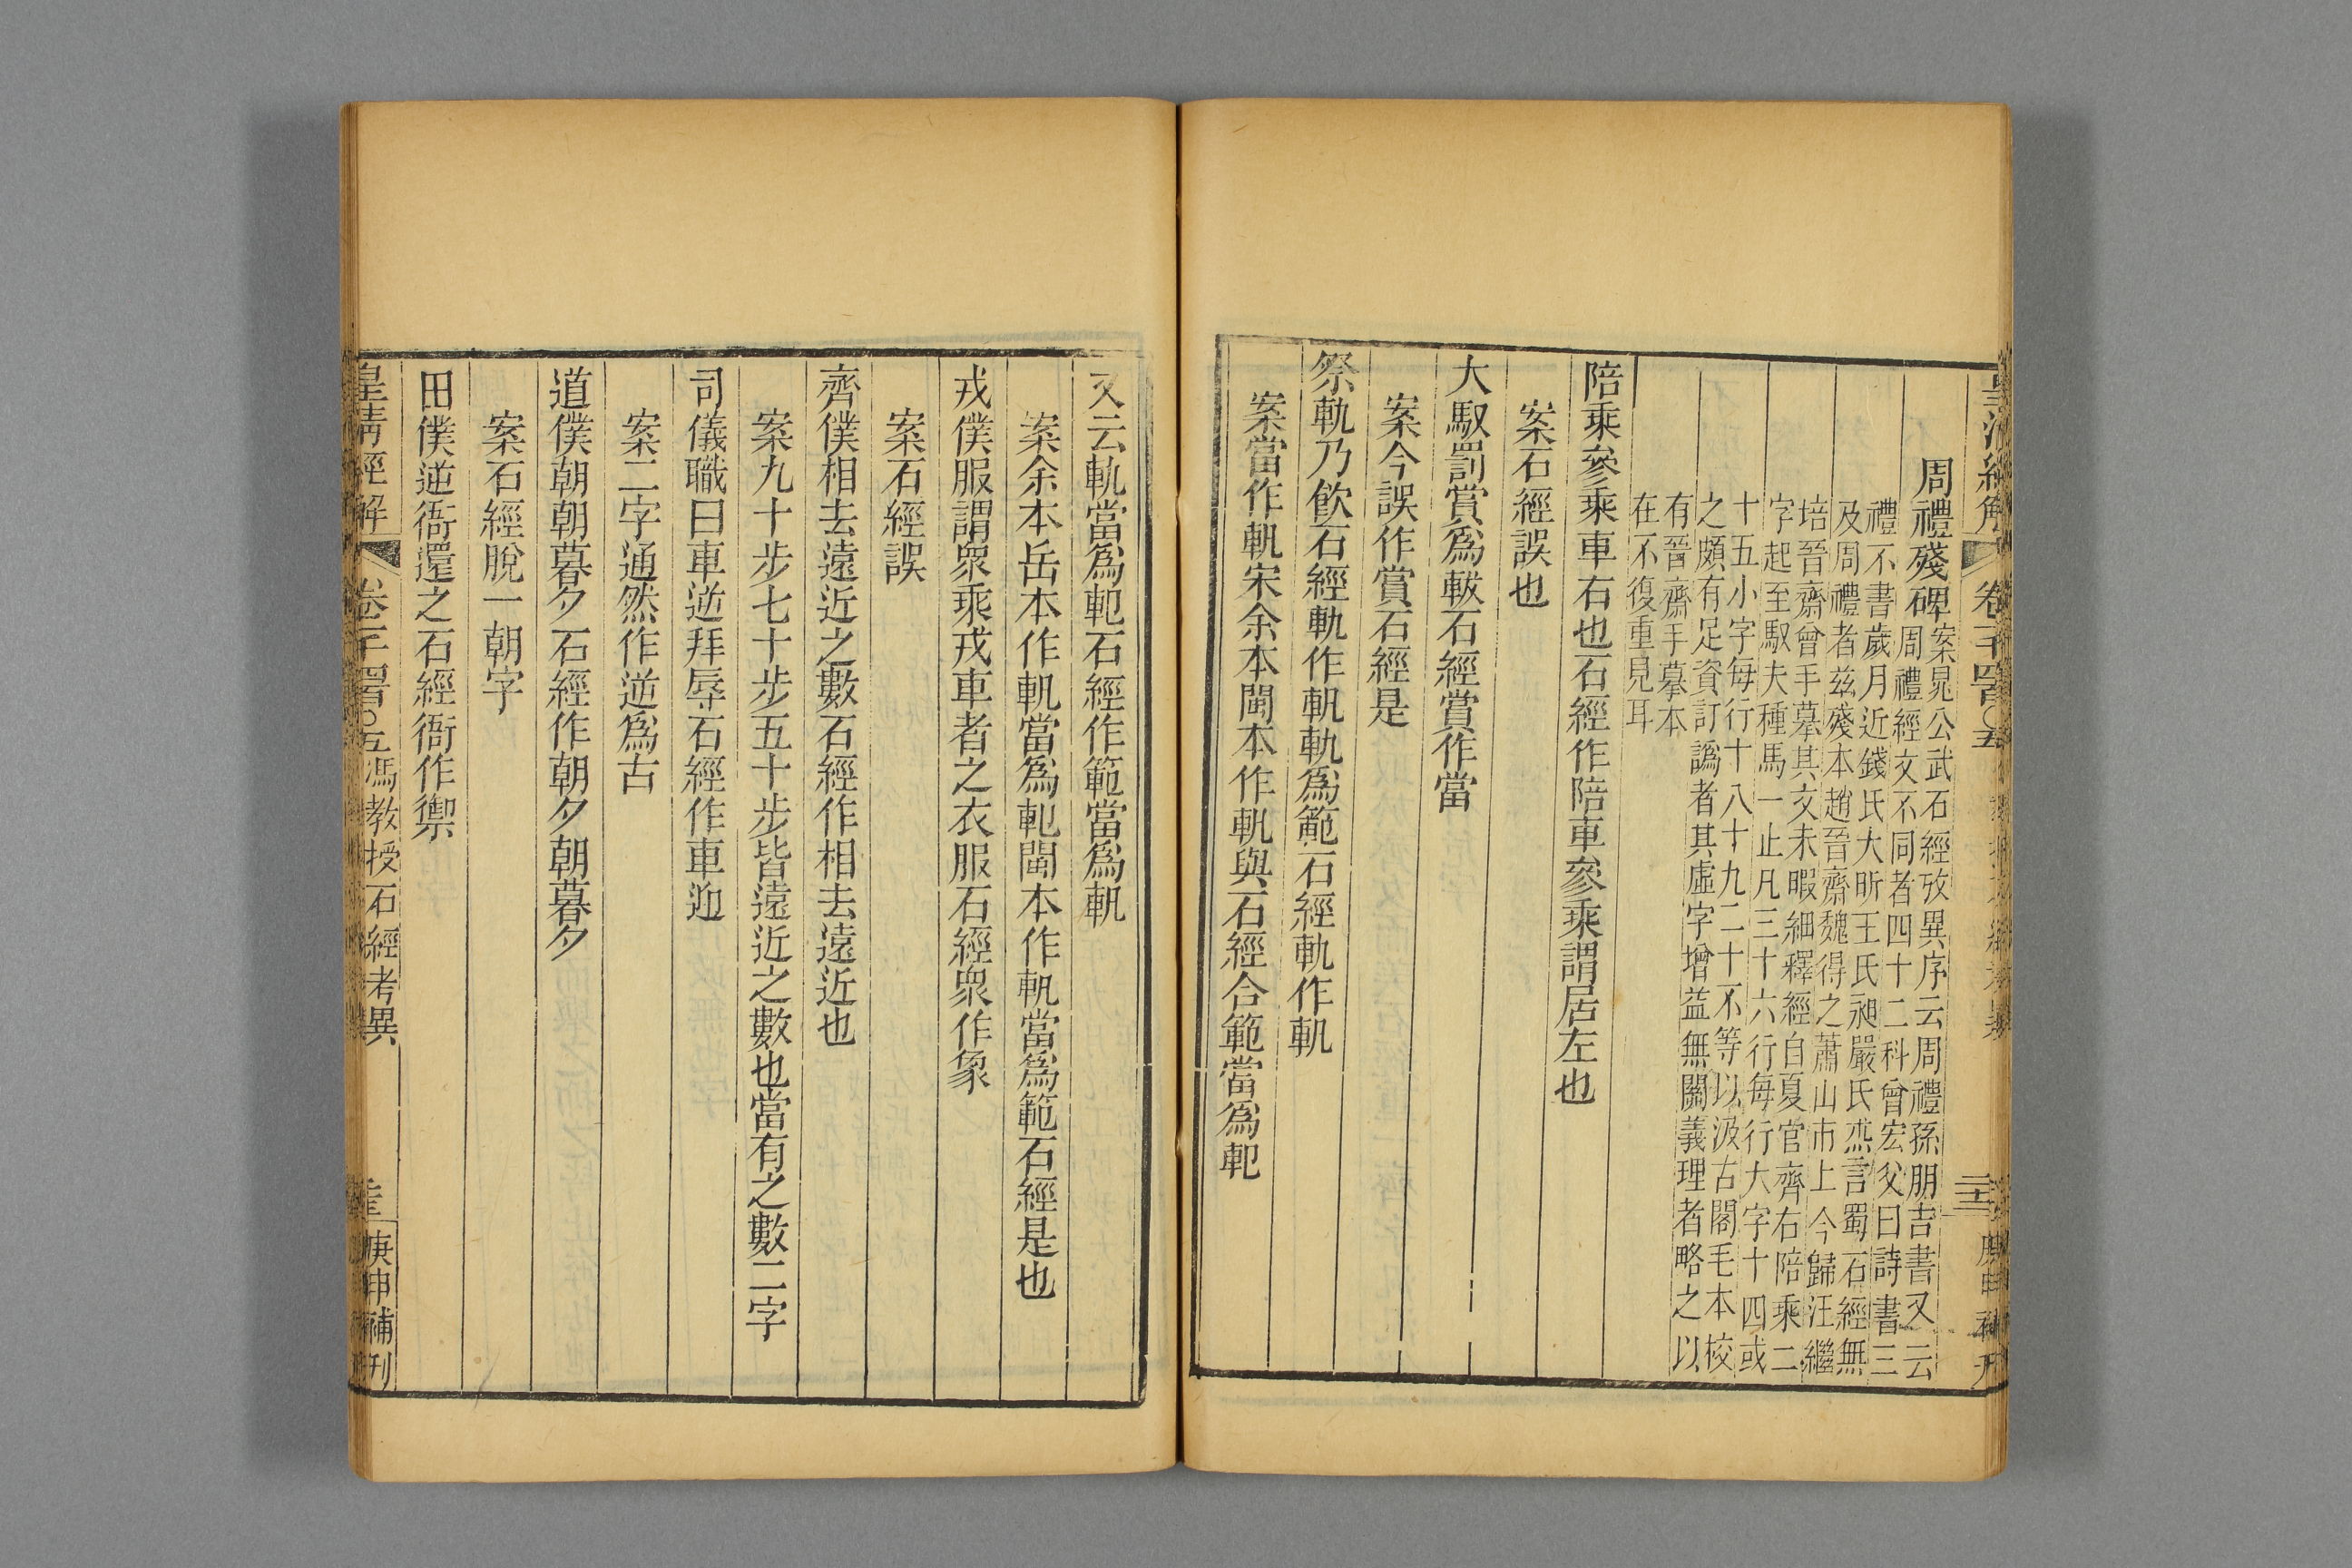 周禮殘碑案晁公武石經攷異序云周禮孫朋吉書又云
周禮經文不同者四十二科曾宏父曰詩書三
禮不書歲月近錢氏大昕王氏昶嚴氏杰言蜀石經無
及周禮者茲殘本趙晉齋魏得之蕭山市上今歸汪繼
培晉齋曾手摹其文未暇細釋經自夏官齊右陪乘二
字起至馭夫種馬一止凡三十六行每行大字十四或
十五小字每行十八十九二十不等以汲古閣毛本校
之頗有足資訂譌者其虛字增益無關義理者略之以
有晉齋手摹本
在不復重見耳
陪乘參乘車右也石經作陪車參乘謂居左也
案石經誤也
大馭罰賞爲軷石經賞作當
案今誤作賞石經是
祭軌乃飲石經軌作軓軌爲範石經軌作軓
案當作軓宋余本閩本作軓與石經合範當爲軺
又云軌當爲軺石經作範當爲軓
案余本岳本作軓當爲軺閩本作軓當爲範石經是也
戎僕服謂衆乘戎車者之衣服石經衆作象
案石經誤
齊僕相去遠近之數石經作相去遠近也
案九十步七十步五十步皆遠近之數也當有之數二字
司儀職曰車逆拜辱石經作車迎
案二字通然作逆爲古
道僕朝朝暮夕石經作朝夕朝暮夕
案石經脫一朝字
田僕逆衙還之石經衙作禦
皇清經解
卷一千四百〇五馮教授石經考異
庚申補刊